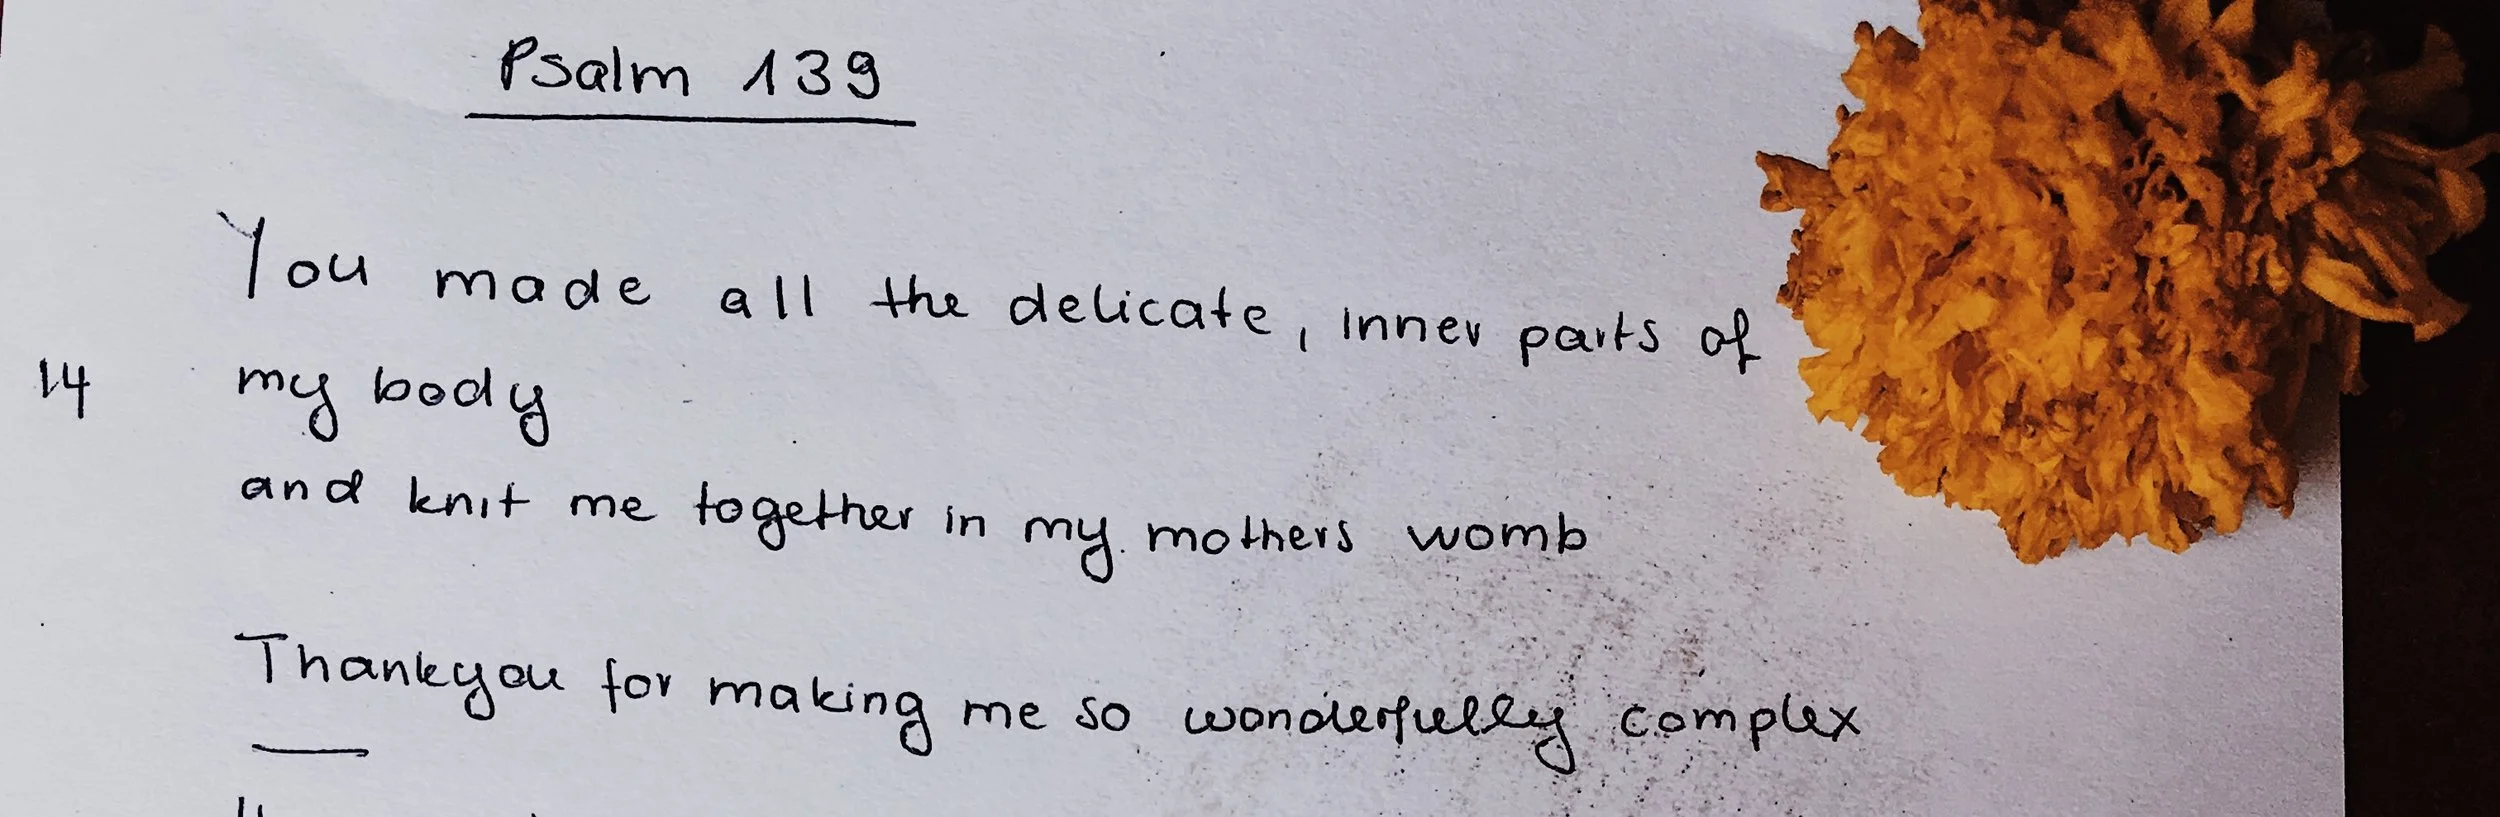 Psalm 139
You made all the delicate, inner parts of
14 my body
and knit me together in my mothers womb
Thankyou for making me so wonderfully complex